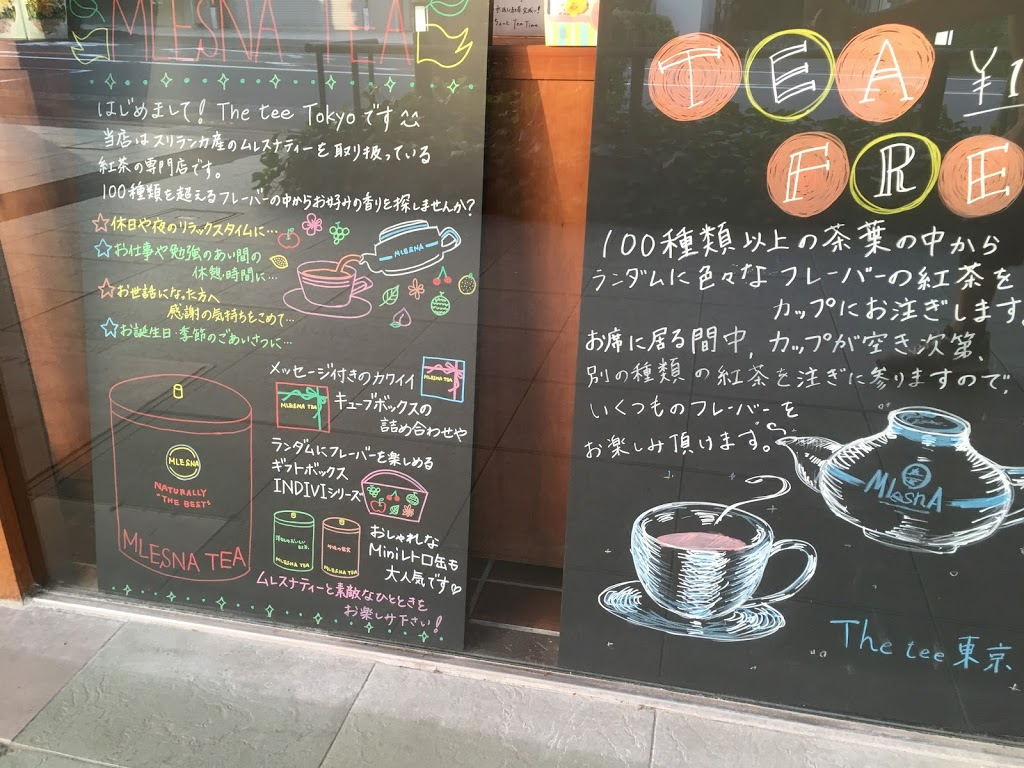 MLESNA TEA
はじめまして！ The tee Tokyoです
当店はスリランカ産のムレスナティーを取り扱っている
紅茶の専門店です。
100種類を超えるフレーバーの中からお好みの香りを探しませんか？
☆休日や夜のリラックスタイムに…
☆お仕事や勉強のあい間の
休憩時間に…
☆お世話になった方へ
感謝の気持ちをこめて…
☆お誕生日・季節のごあいさつに…
MLESNA
メッセージ付きのカワイイ
キューブボックスの
詰め合わせや
MLESNA TEA
MLESNA TEA
ランダムにフレーバーを楽しめる
ギフトボックス
INDIVIシリーズ
おしゃれな
Miniレトロ缶も
大人気です♡
MLESNA TEA
MLESNA TEA
MLESNA
NATURALLY
"THE BEST"
MLESNA TEA
ムレスナティーと素敵なひとときを
お楽しみ下さい！
Tea Time
TEA ¥1
FRE
100種類以上の茶葉の中から
ランダムに色々なフレーバーの紅茶を
カップにお注ぎします。
お席に居る間中、カップが空き次第、
別の種類の紅茶を注ぎに参りますので、
いくつものフレーバーを
お楽しみ頂けます。
MlesnA
The tee 東京